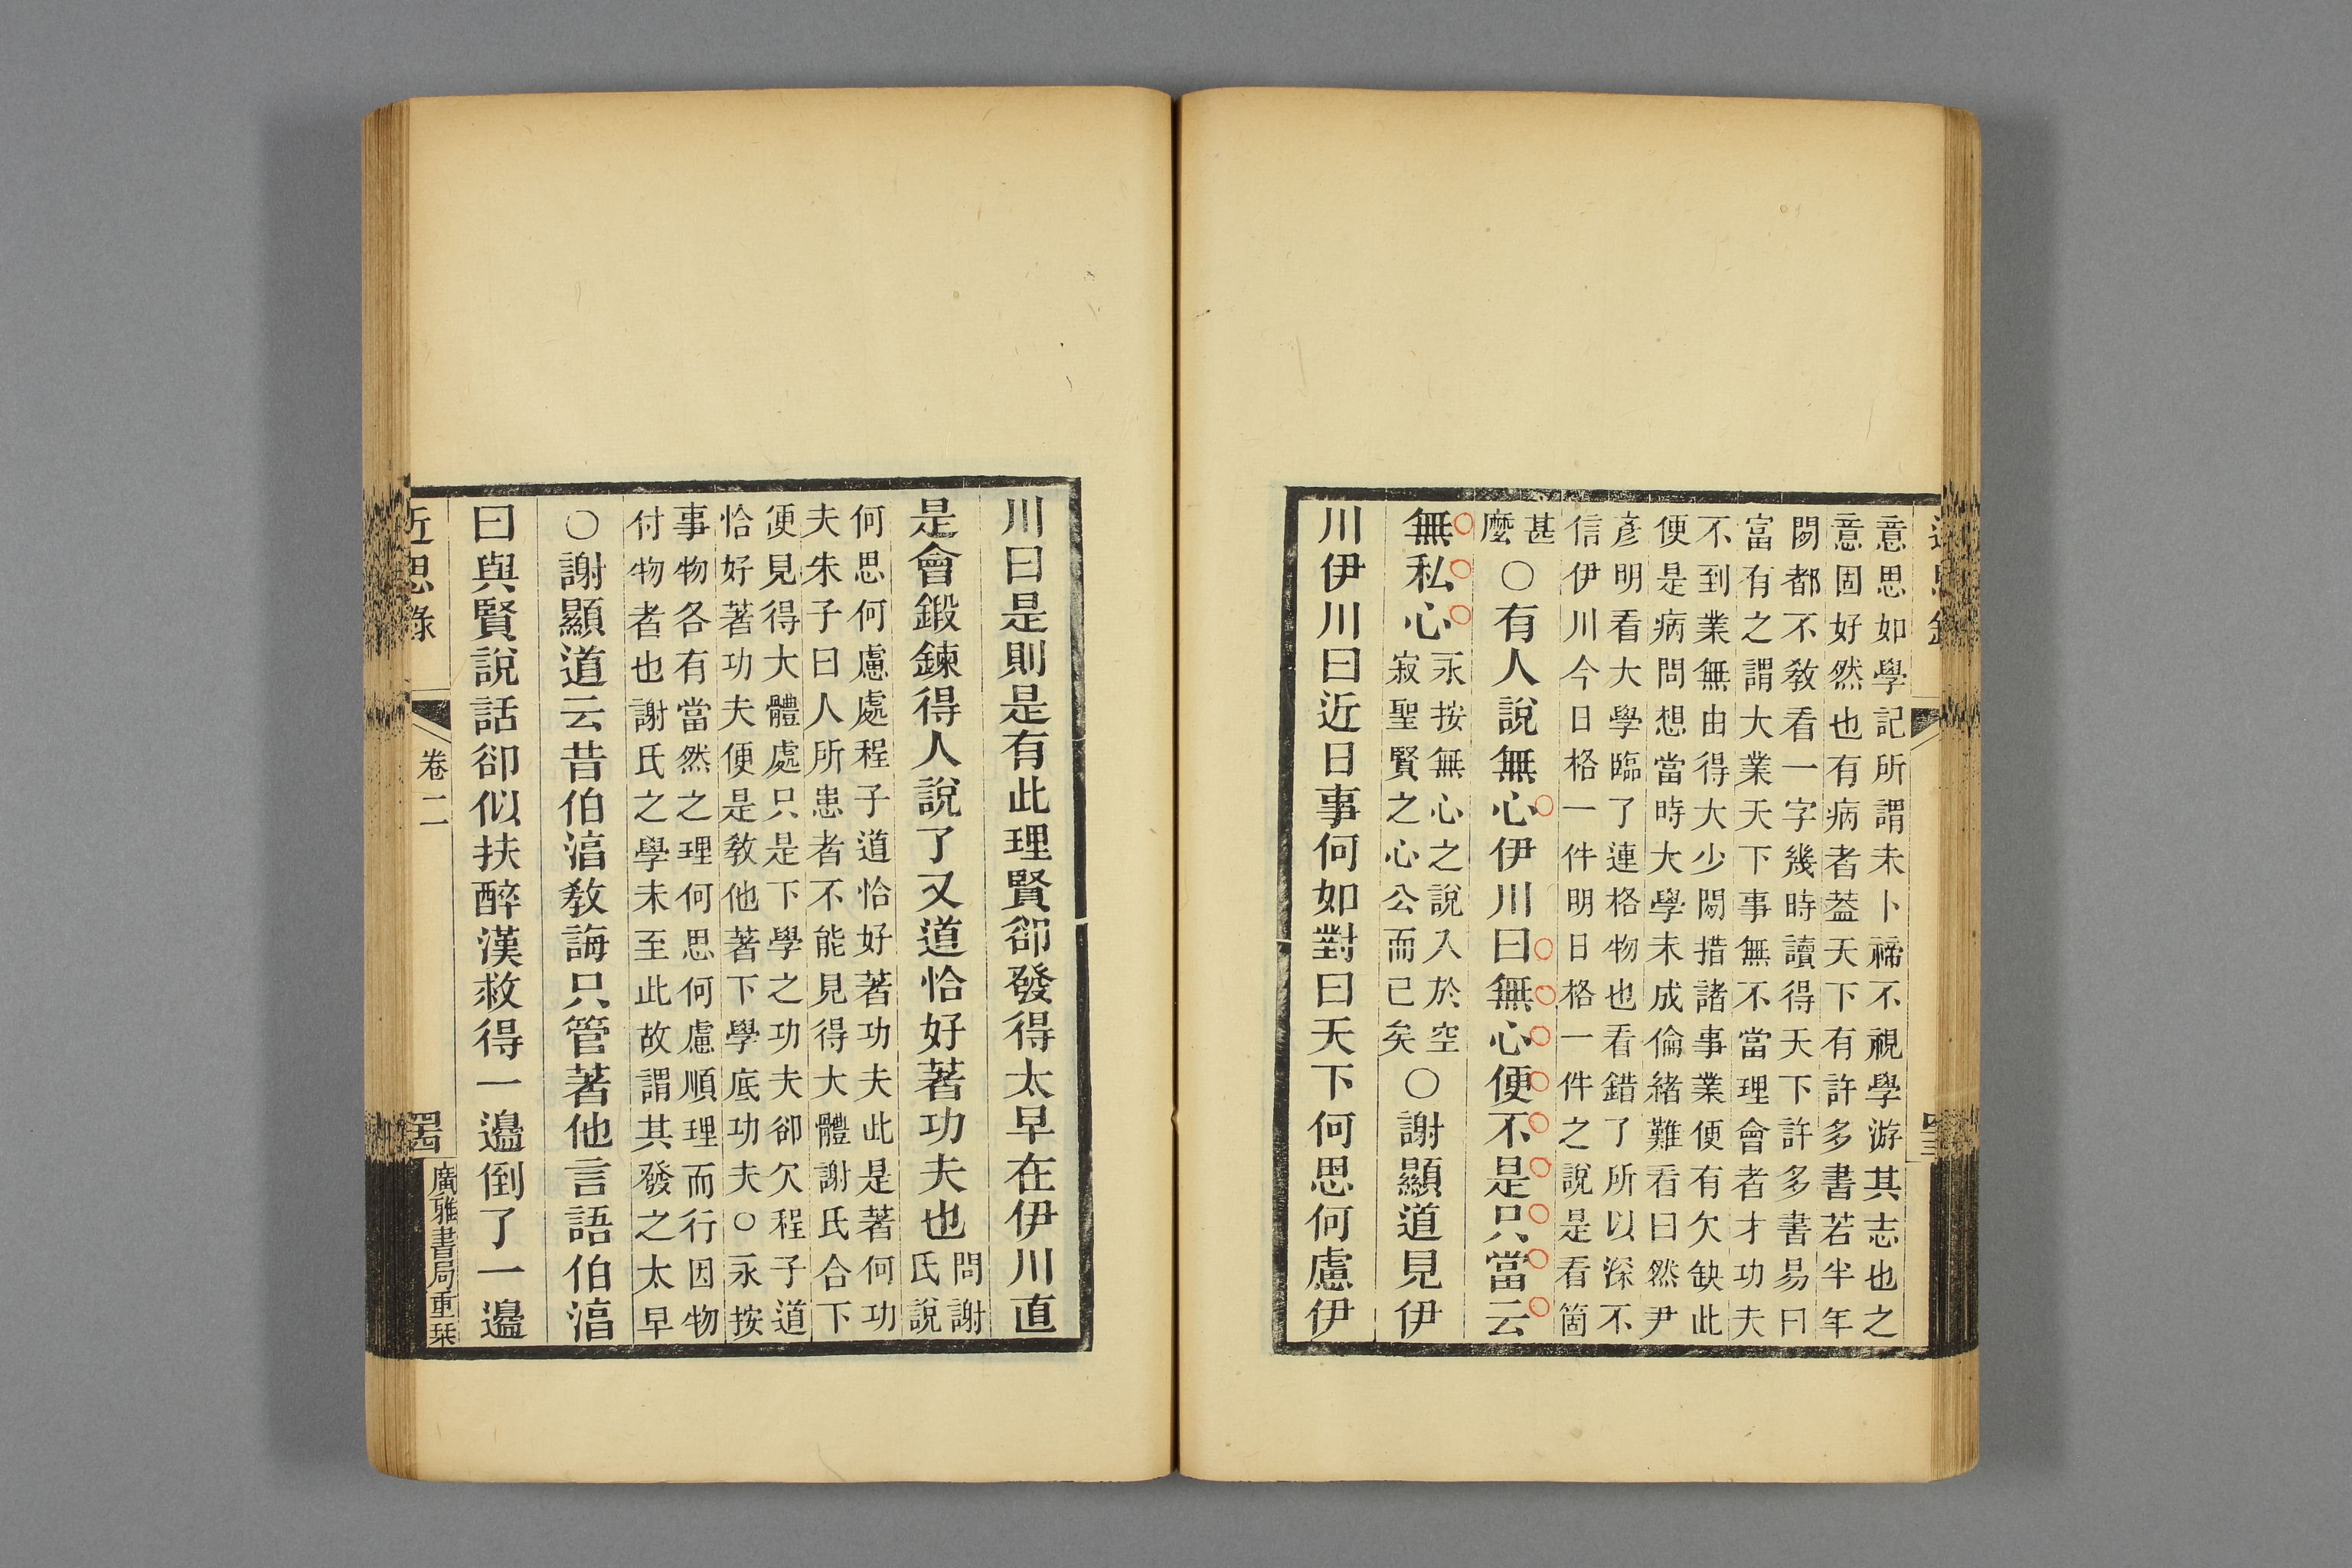 意思如學記所謂未卜禘不視學游其志也之
意固好然也有病者葢天下有許多書若半年
間都不教看一字幾時讀得天下許多書易曰
富有之謂大業天下事無不當理會者才功夫
不到業無由得大少間措諸事業便有欠缺此
便是病問想當時大學未成倫緒難看曰然尹
彥明看大學臨了連格物也看錯了所以深不
信伊川今日格一件明日格一件之說是看箇
甚
麼
○有人說無心伊川曰無心便不是只當云
無私心
永按無心之說入於空
寂聖賢之心公而已矣
○謝顯道見伊
川伊川曰近日事何如對曰天下何思何慮伊
川曰是則是有此理賢卻發得太早在伊川直
是會鍛鍊得人說了又道恰好著功夫也
問謝
氏說
何思何慮處程子道恰好著功夫此是著何功
夫朱子曰人所患者不能見得大體謝氏合下
便見得大體處只是下學之功夫卻欠程子道
恰好著功夫便是教他著下學底功夫○永按
事物各有當然之理何思何慮順理而行因物
付物者也謝氏之學未至此故謂其發之太早
○謝顯道云昔伯淳教誨只管著他言語伯淳
曰與賢說話卻似扶醉漢救得一邊倒了一邊
近思錄
卷二
廣雅書局重栞